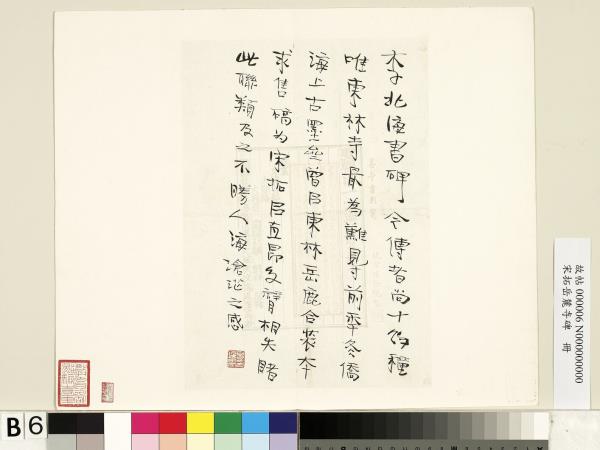 李北海書碑今傳者尚十餘種
唯東林寺最為難見寸前年冬僑
海上古墨坐曾已東林岳麓合裝本
求售碻為宋拓已直昂交臂相失睹
此聯類及之不勝人海滄茫之感
故帖 000006 N000000000
宋拓岳麓寺碑 冊
B 6